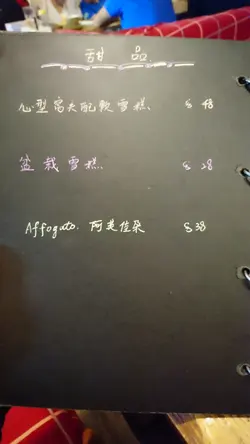 甜品
心型窩夫配軟雪糕 $ 48
盆栽雪糕 $ 28
Affogato 阿芙佳朵 $ 38